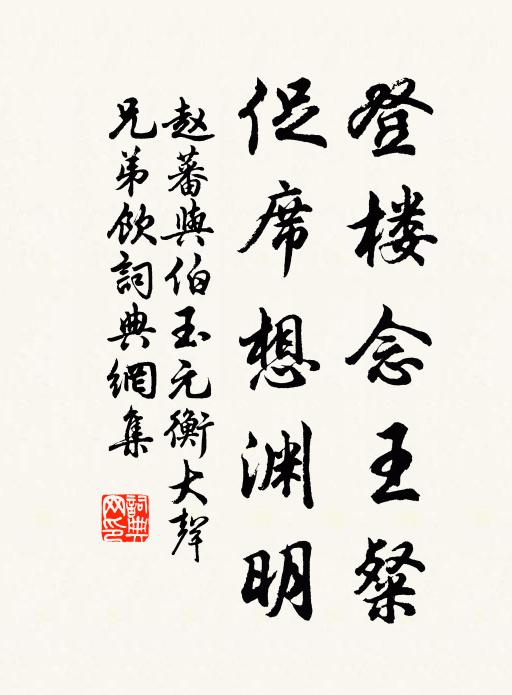 登楼念王粲
促席想渊明
赵蕃與伯玉元衡大聲
兄弟飲詞典網集
詞典網印